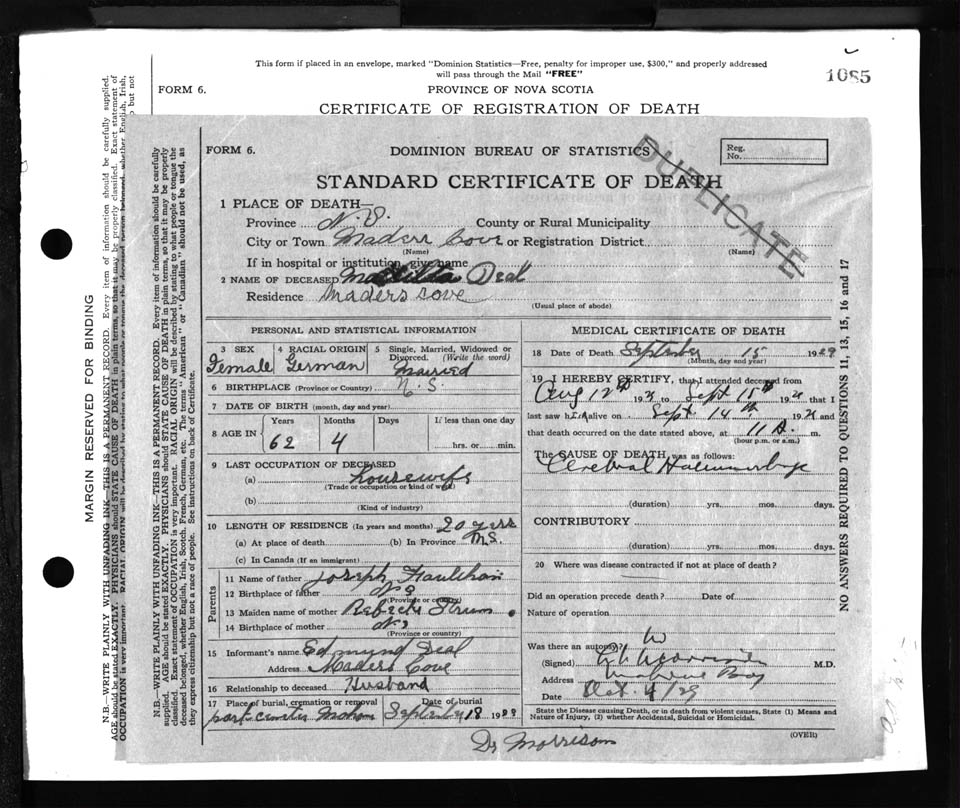 This form if placed in an envelope, marked "Dominion Statistics—Free, penalty for improper use, $300," and properly addressed
will pass through the Mail "FREE"
1085
FORM 6.
PROVINCE OF NOVA SCOTIA
CERTIFICATE OF REGISTRATION OF DEATH
MARGIN RESERVED FOR BINDING
N.B.—WRITE PLAINLY WITH UNFADING INK—THIS IS A PERMANENT RECORD. Every item of information should be carefully supplied.
AGE should be stated EXACTLY. PHYSICIANS should STATE CAUSE OF DEATH in plain terms, so that it may be properly classified. Exact statement of
OCCUPATION is very important.
FORM 6.
DOMINION BUREAU OF STATISTICS
Reg.
No.
DUPLICATE
STANDARD CERTIFICATE OF DEATH
N.B.—WRITE PLAINLY WITH UNFADING INK—THIS IS A PERMANENT RECORD. Every item of information should be carefully
supplied. AGE should be stated EXACTLY. PHYSICIANS should STATE CAUSE OF DEATH in plain terms, so that it may be properly
classified. Exact statement of OCCUPATION is very important. RACIAL ORIGIN will be described by stating to what people or tongue the
deceased belonged, whether English, Irish, Scotch, French, German, etc. The terms "American" or "Canadian" should not be used, as
they express citizenship but not a race of people. See instructions on back of Certificate.
1 PLACE OF DEATH—
Province N.S. County or Rural Municipality
City or Town Maders Cove or Registration District
(Name) (Name)
If in hospital or institution, give name
2 NAME OF DECEASED Matilda Deal
Residence Maders Cove
(Usual place of abode)
PERSONAL AND STATISTICAL INFORMATION
3 SEX
Female
4 RACIAL ORIGIN
German
5 Single, Married, Widowed or
Divorced. (Write the word)
Married
6 BIRTHPLACE (Province or Country) N.S.
7 DATE OF BIRTH (month, day and year)
8 AGE IN
Years Months Days If less than one day
62 4 hrs. or min.
9 LAST OCCUPATION OF DECEASED
(a) housewife
(Trade or occupation or kind of work)
(b)
(Kind of industry)
10 LENGTH OF RESIDENCE (In years and months) 20 years
(a) At place of death (b) In Province N.S.
(c) In Canada (If an immigrant)
Parents
11 Name of father Joseph
12 Birthplace of father N S
(Province or country)
13 Maiden name of mother
14 Birthplace of mother N S
(Province or country)
15 Informant's name Edmund Deal
Address Maders Cove
16 Relationship to deceased Husband
17 Place of burial, cremation or removal Date of burial
September 18 1929
MEDICAL CERTIFICATE OF DEATH
18 Date of Death September 15 1929
(Month, day and year)
19 I HEREBY CERTIFY, that I attended deceased from
Aug 12th 192 to Sept 15th 192 that I
last saw h er alive on Sept. 14th 192
and that death occurred on the date stated above, at 11 A. m.
(hour p.m. or a.m.)
The CAUSE OF DEATH was as follows:
Cerebral Haemorrhage
(duration) yrs. mos. days.
CONTRIBUTORY
(duration) yrs. mos. days.
20 Where was disease contracted if not at place of death?
Did an operation precede death? Date of
Nature of operation
Was there an autopsy?
(Signed) M.D.
Address Mahone Bay
Date Oct. 4/29
State the Disease causing Death, or in death from violent causes, State (1) Means and
Nature of Injury, (2) whether Accidental, Suicidal or Homicidal.
(OVER)
NO ANSWERS REQUIRED TO QUESTIONS 11, 13, 15, 16 and 17
Dr Morrison